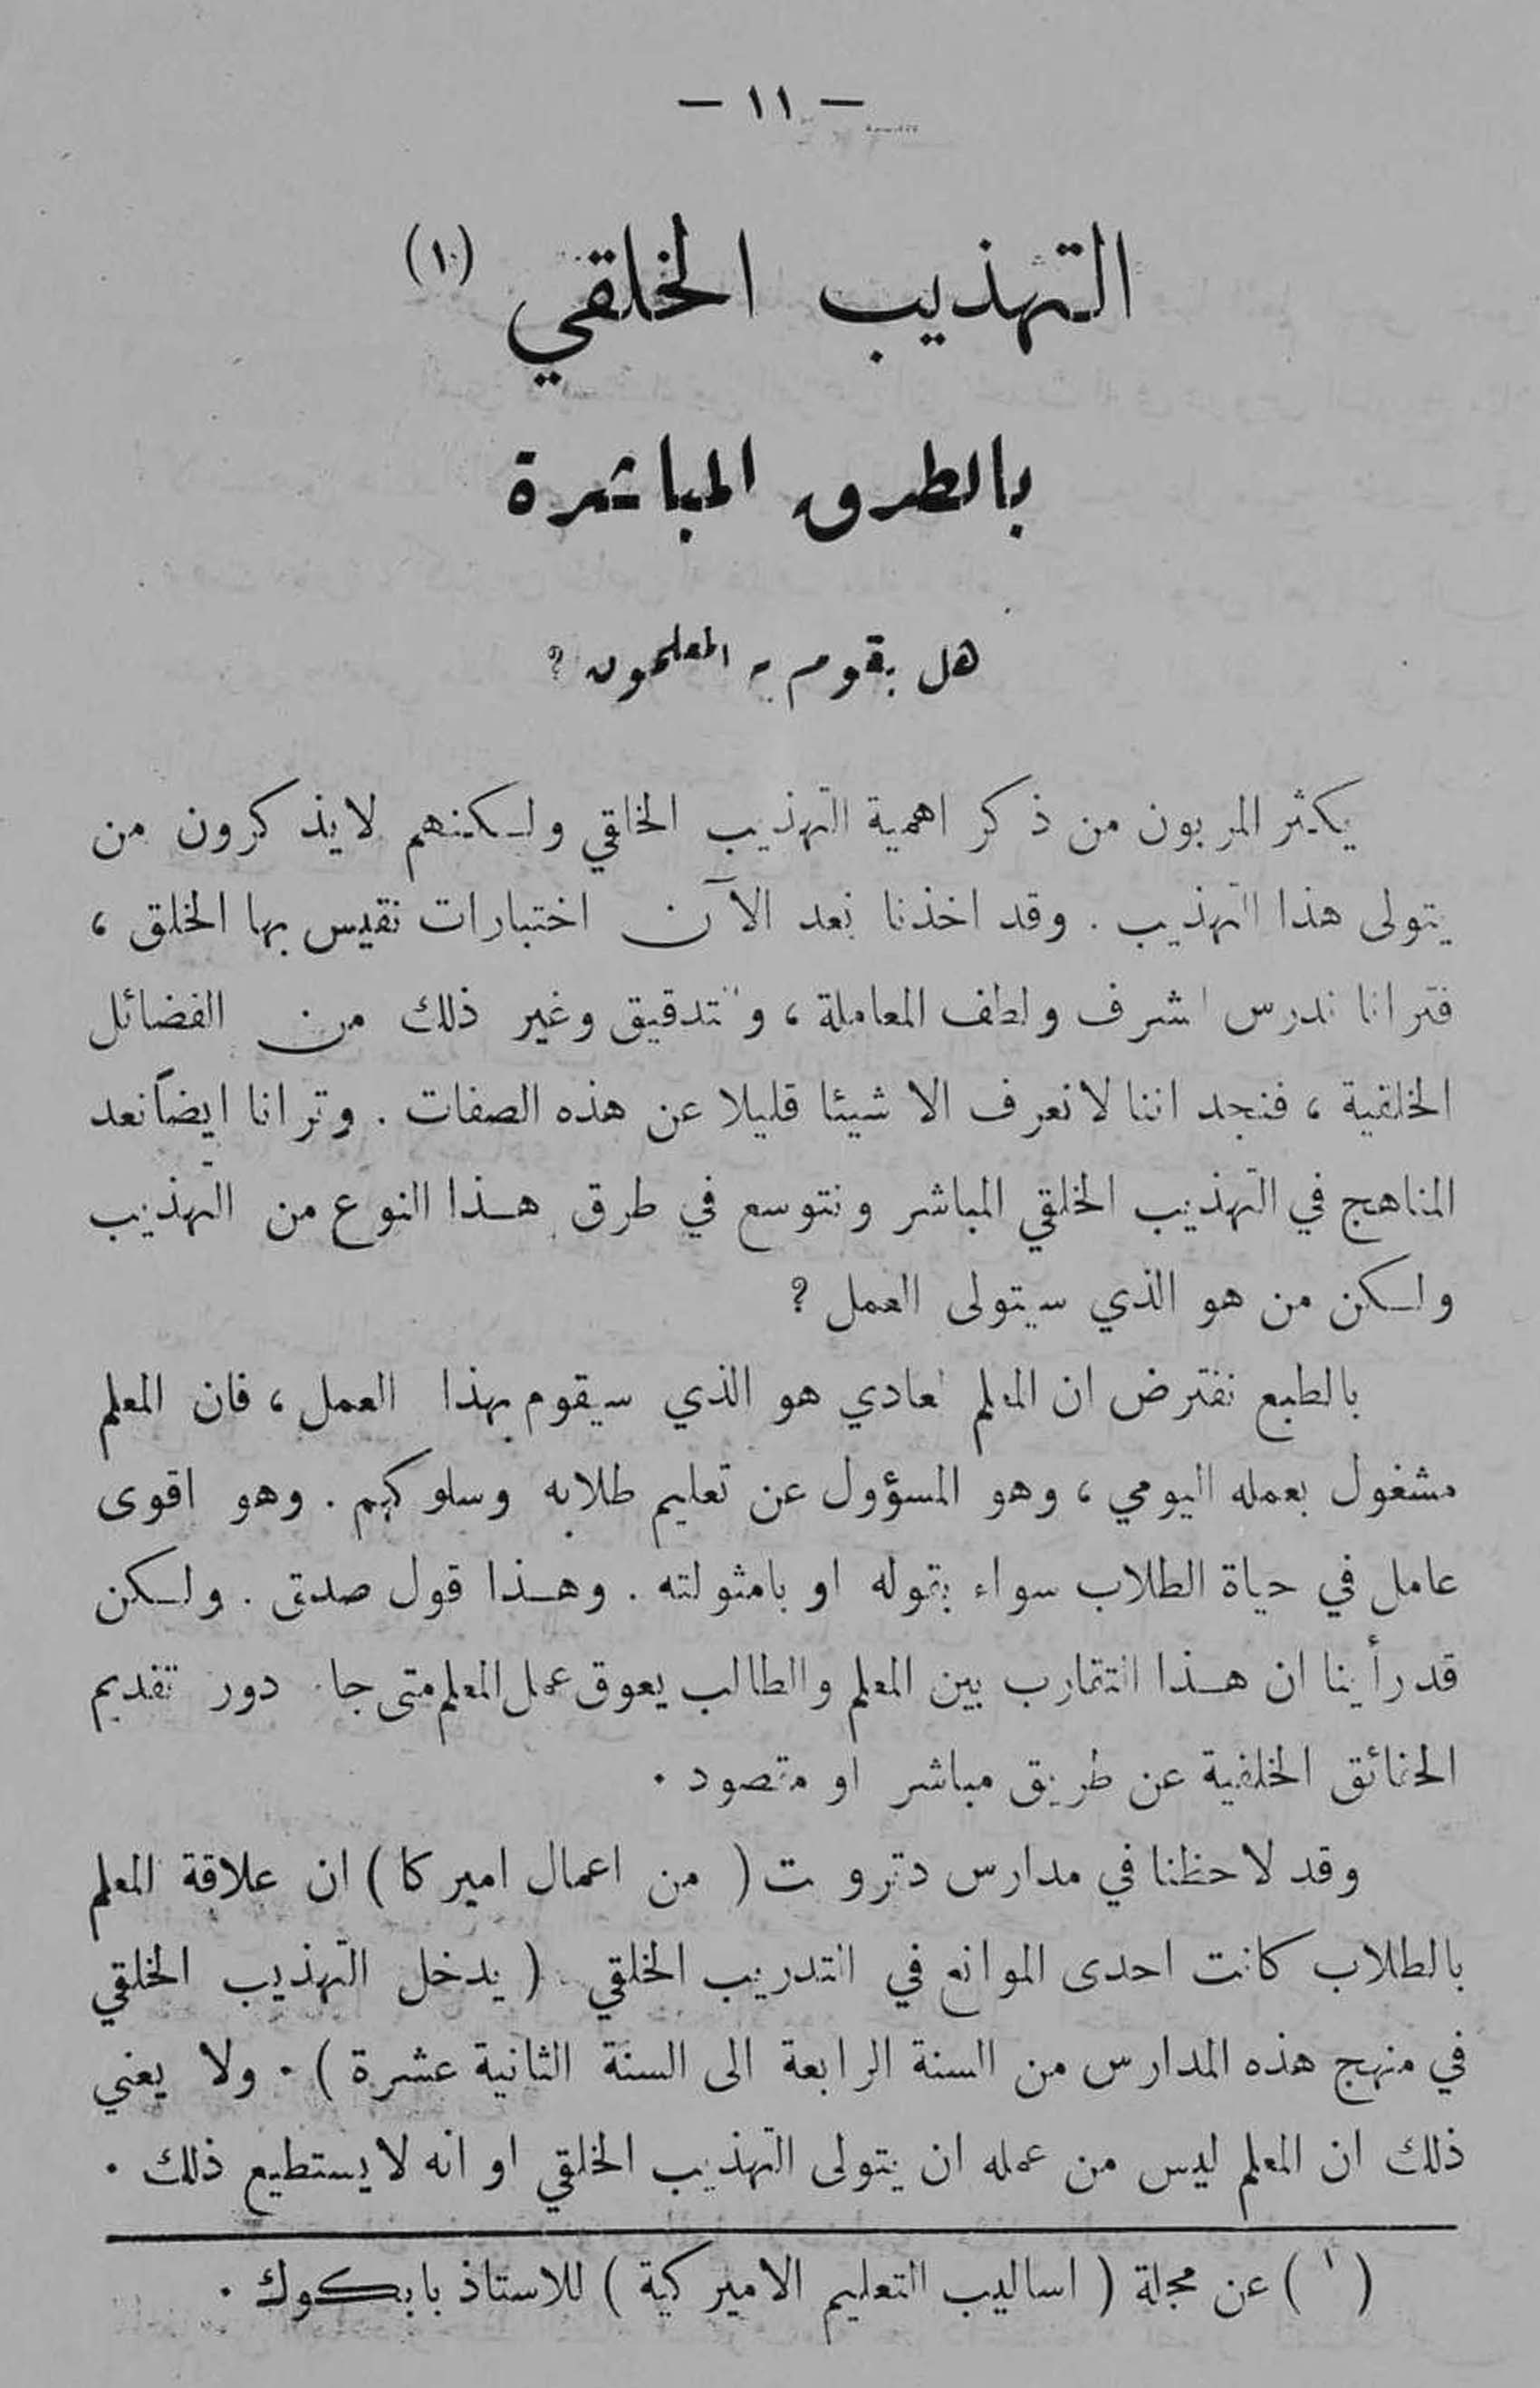 — ١١ —
التهذيب الخلقي (١)
بالطرق المباشرة
هل يقوم به المعلمون ؟
يكثر المربون من ذكر اهمية التهذيب الخلقي ولكنهم لايذكرون من
يتولى هذا التهذيب . وقد اخذنا نعد الآن اختبارات نقيس بها الخلق ،
فترانا ندرس الشرف ولطف المعاملة ، والتدقيق وغير ذلك من الفضائل
الخلقية ، فنجد اننا لا نعرف الا شيئا قليلا عن هذه الصفات . وترانا ايضاً نعد
المناهج في التهذيب الخلقي المباشر ونتوسع في طرق هذا النوع من التهذيب
ولكن من هو الذي سيتولى العمل ؟
بالطبع نفترض ان المعلم العادي هو الذي سيقوم بهذا العمل ، فان المعلم
مشغول بعمله اليومي ، وهو المسؤول عن تعليم طلابه وسلوكهم . وهو اقوى
عامل في حياة الطلاب سواء بقوله او بامثولته . وهذا قول صدق . ولكن
قد رأينا ان هذا التقارب بين المعلم والطالب يعوق عمل المعلم متى جاء دور تقديم
الحقائق الخلقية عن طريق مباشر او مقصود .
وقد لاحظنا في مدارس دترويت ( من اعمال اميركا ) ان علاقة المعلم
بالطلاب كانت احدى الموانع في التدريب الخلقي ( يدخل التهذيب الخلقي
في منهج هذه المدارس من السنة الرابعة الى السنة الثانية عشرة ) . ولا يعني
ذلك ان المعلم ليس من عمله ان يتولى التهذيب الخلقي او انه لا يستطيع ذلك .
( ١ ) عن مجلة ( اساليب التعليم الاميركية ) للاستاذ بابكوك .